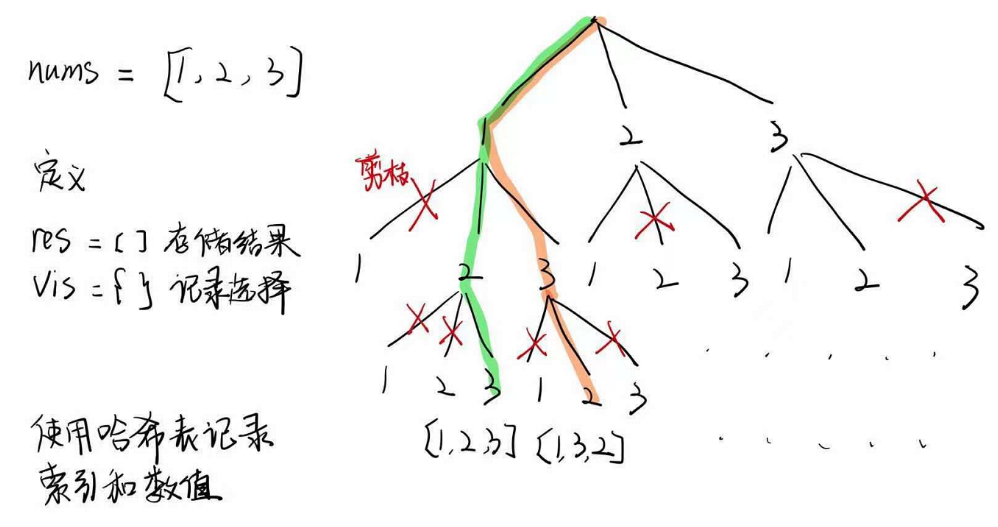 nums = [1, 2, 3]
定义
res = [ ] 存储结果
Vis = { } 记录选择
使用哈希表记录
索引和数值
1
2 3
剪枝
1 2 3 1 2 3 1 2 3
1 2 3 1 2 3
[1,2,3] [1,3,2]
. . . . .
. . . . .